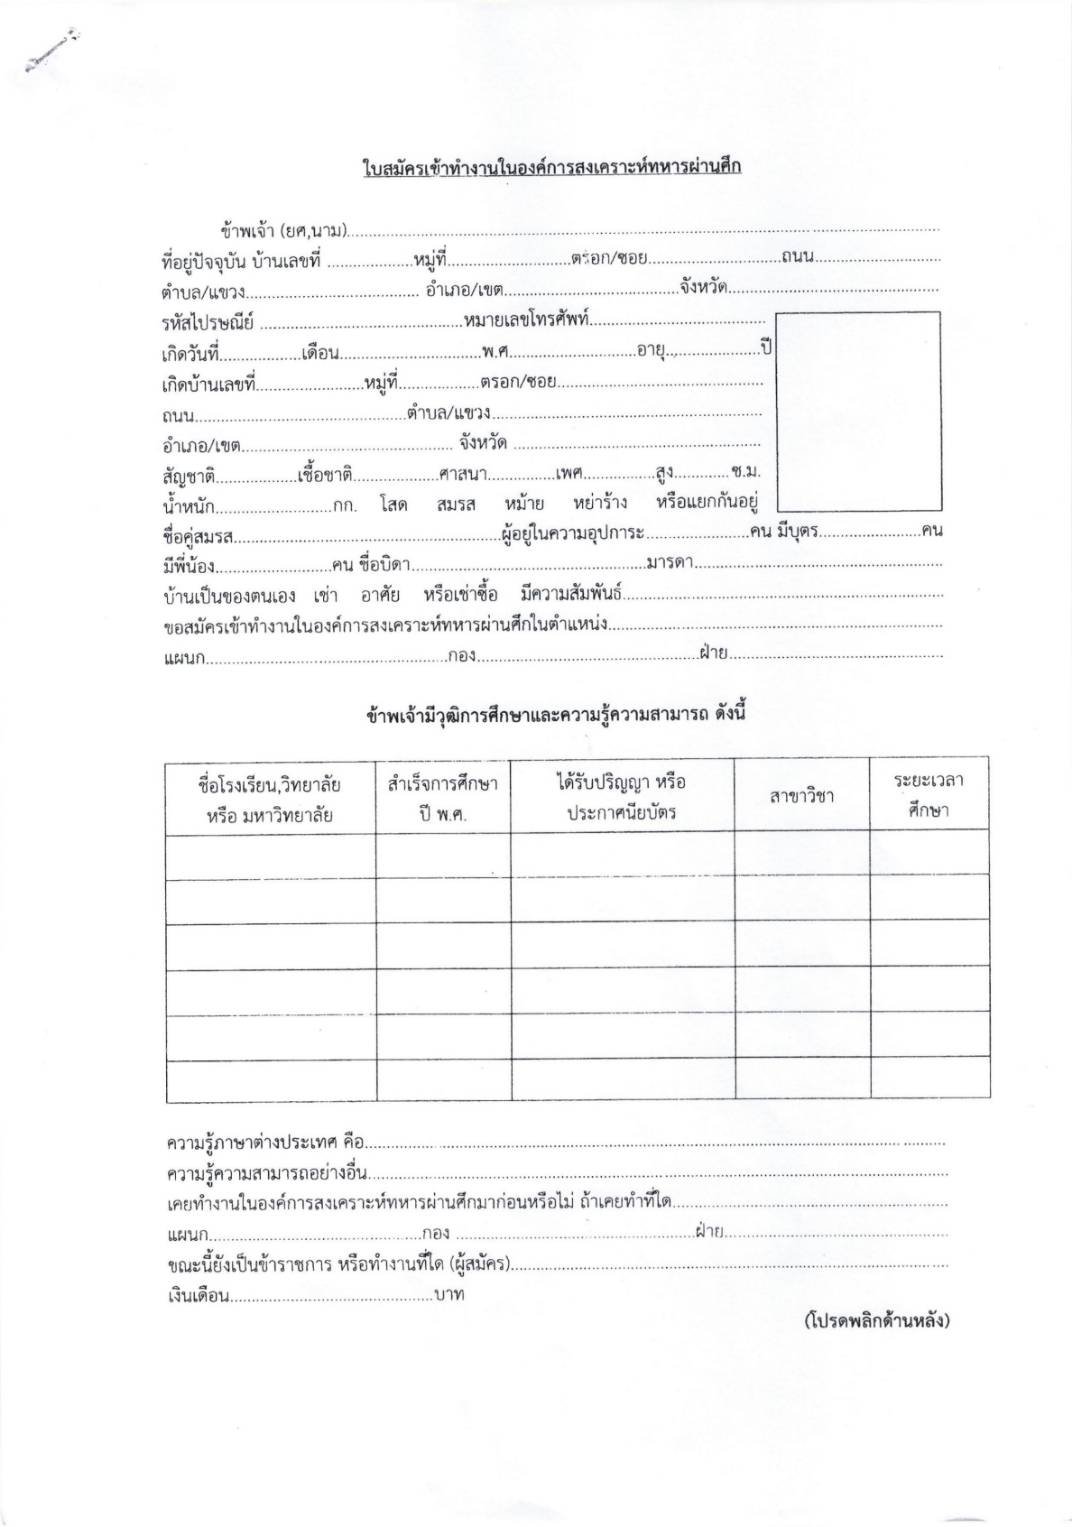 ใบสมัครเข้าทำงานในองค์การสงเคราะห์ทหารผ่านศึก
ข้าพเจ้า (ยศ,นาม)..........
ที่อยู่ปัจจุบัน บ้านเลขที่ ..........หมู่ที่..........ตรอก/ซอย..........ถนน..........
ตำบล/แขวง.......... อำเภอ/เขต..........จังหวัด..........
รหัสไปรษณีย์ ..........หมายเลขโทรศัพท์..........
เกิดวันที่..........เดือน..........พ.ศ..........อายุ..........ปี
เกิดบ้านเลขที่..........หมู่ที่..........ตรอก/ซอย..........
ถนน..........ตำบล/แขวง..........
อำเภอ/เขต.......... จังหวัด ..........
สัญชาติ..........เชื้อชาติ..........ศาสนา..........เพศ..........สูง..........ซ.ม.
น้ำหนัก..........กก. โสด สมรส หม้าย หย่าร้าง หรือแยกกันอยู่
ชื่อคู่สมรส..........ผู้อยู่ในความอุปการะ..........คน มีบุตร..........คน
มีพี่น้อง..........คน ชื่อบิดา..........มารดา..........
บ้านเป็นของตนเอง เช่า อาศัย หรือเช่าซื้อ มีความสัมพันธ์..........
ขอสมัครเข้าทำงานในองค์การสงเคราะห์ทหารผ่านศึกในตำแหน่ง..........
แผนก..........กอง..........ฝ่าย..........
ข้าพเจ้ามีวุฒิการศึกษาและความรู้ความสามารถ ดังนี้
ชื่อโรงเรียน,วิทยาลัย สำเร็จการศึกษา ได้รับปริญญา หรือ สาขาวิชา ระยะเวลา
หรือ มหาวิทยาลัย ปี พ.ศ. ประกาศนียบัตร ศึกษา
ความรู้ภาษาต่างประเทศ คือ..........
ความรู้ความสามารถอย่างอื่น..........
เคยทำงานในองค์การสงเคราะห์ทหารผ่านศึกมาก่อนหรือไม่ ถ้าเคยทำที่ใด..........
แผนก..........กอง ..........ฝ่าย..........
ขณะนี้ยังเป็นข้าราชการ หรือทำงานที่ใด (ผู้สมัคร)..........
เงินเดือน..........บาท
(โปรดพลิกด้านหลัง)